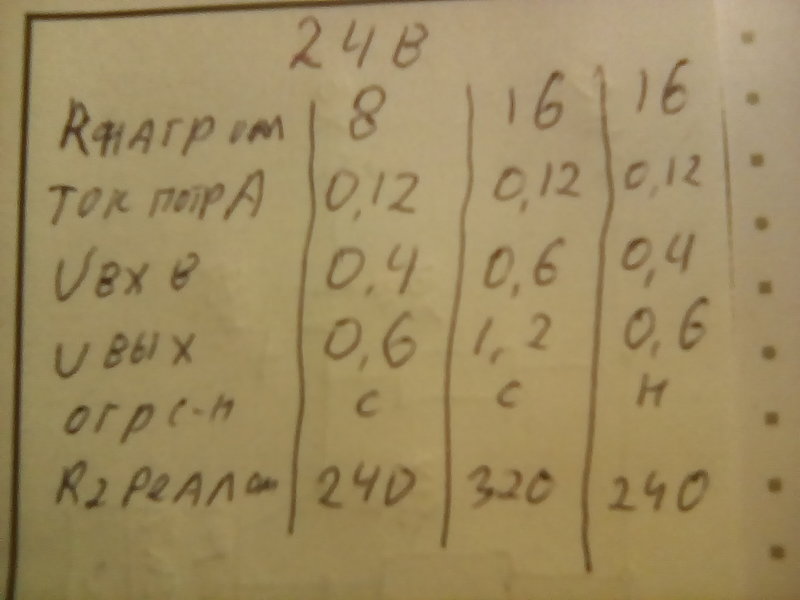 24В
Rнагр ом 8 16 16
ток потр А 0,12 0,12 0,12
U вх в 0,4 0,6 0,4
U вых 0,6 1,2 0,6
огр с-н с с н
R2 реал ом 240 320 240